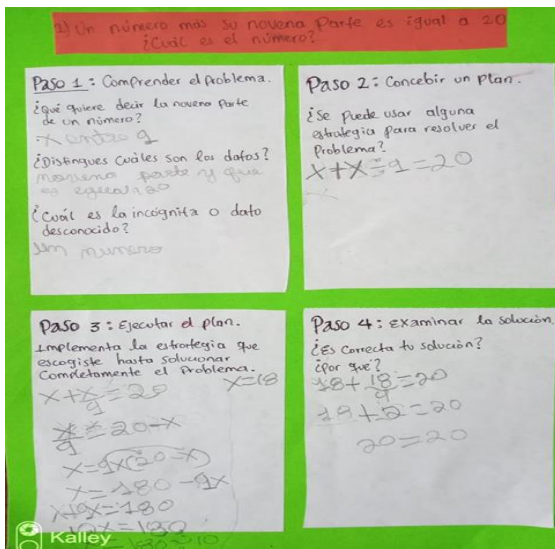 2) Un número más su novena parte es igual a 20
¿Cuál es el número?
Paso 1: Comprender el problema.
¿Qué quiere decir la novena parte
de un número?
x entre 9
¿Distingues cuáles son los datos?
novena parte y que
es igual a 20
¿Cuál es la incógnita o dato
desconocido?
Un numero
Paso 2: Concebir un plan.
¿Se puede usar alguna
estrategia para resolver el
problema?
x+x÷9=20
Paso 3: Ejecutar el plan.
Implementa la estrategia que
escogiste hasta solucionar
completamente el problema.
x=18
x+x/9=20
x/9=20-x
x=9x(20-x)
x=180-9x
x+9x=180
10x=180
x=180÷10
Paso 4: Examinar la solución.
¿Es correcta tu solución?
¿Por qué?
18+18/9=20
18+2=20
20=20
Kalley